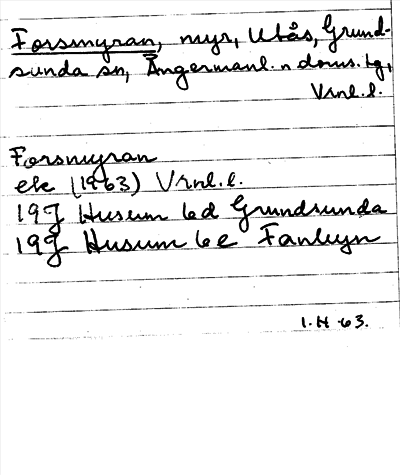 Forsmyran, myr, Utås, Grund-
sunda sn, Ångermanl. n doms. tg,
Vrnl. l.
Forsmyran
ek (1963) Vrnl. l.
19J Husum 6d Grundsunda
19J Husum 6e Fanbyn
I. H 63.